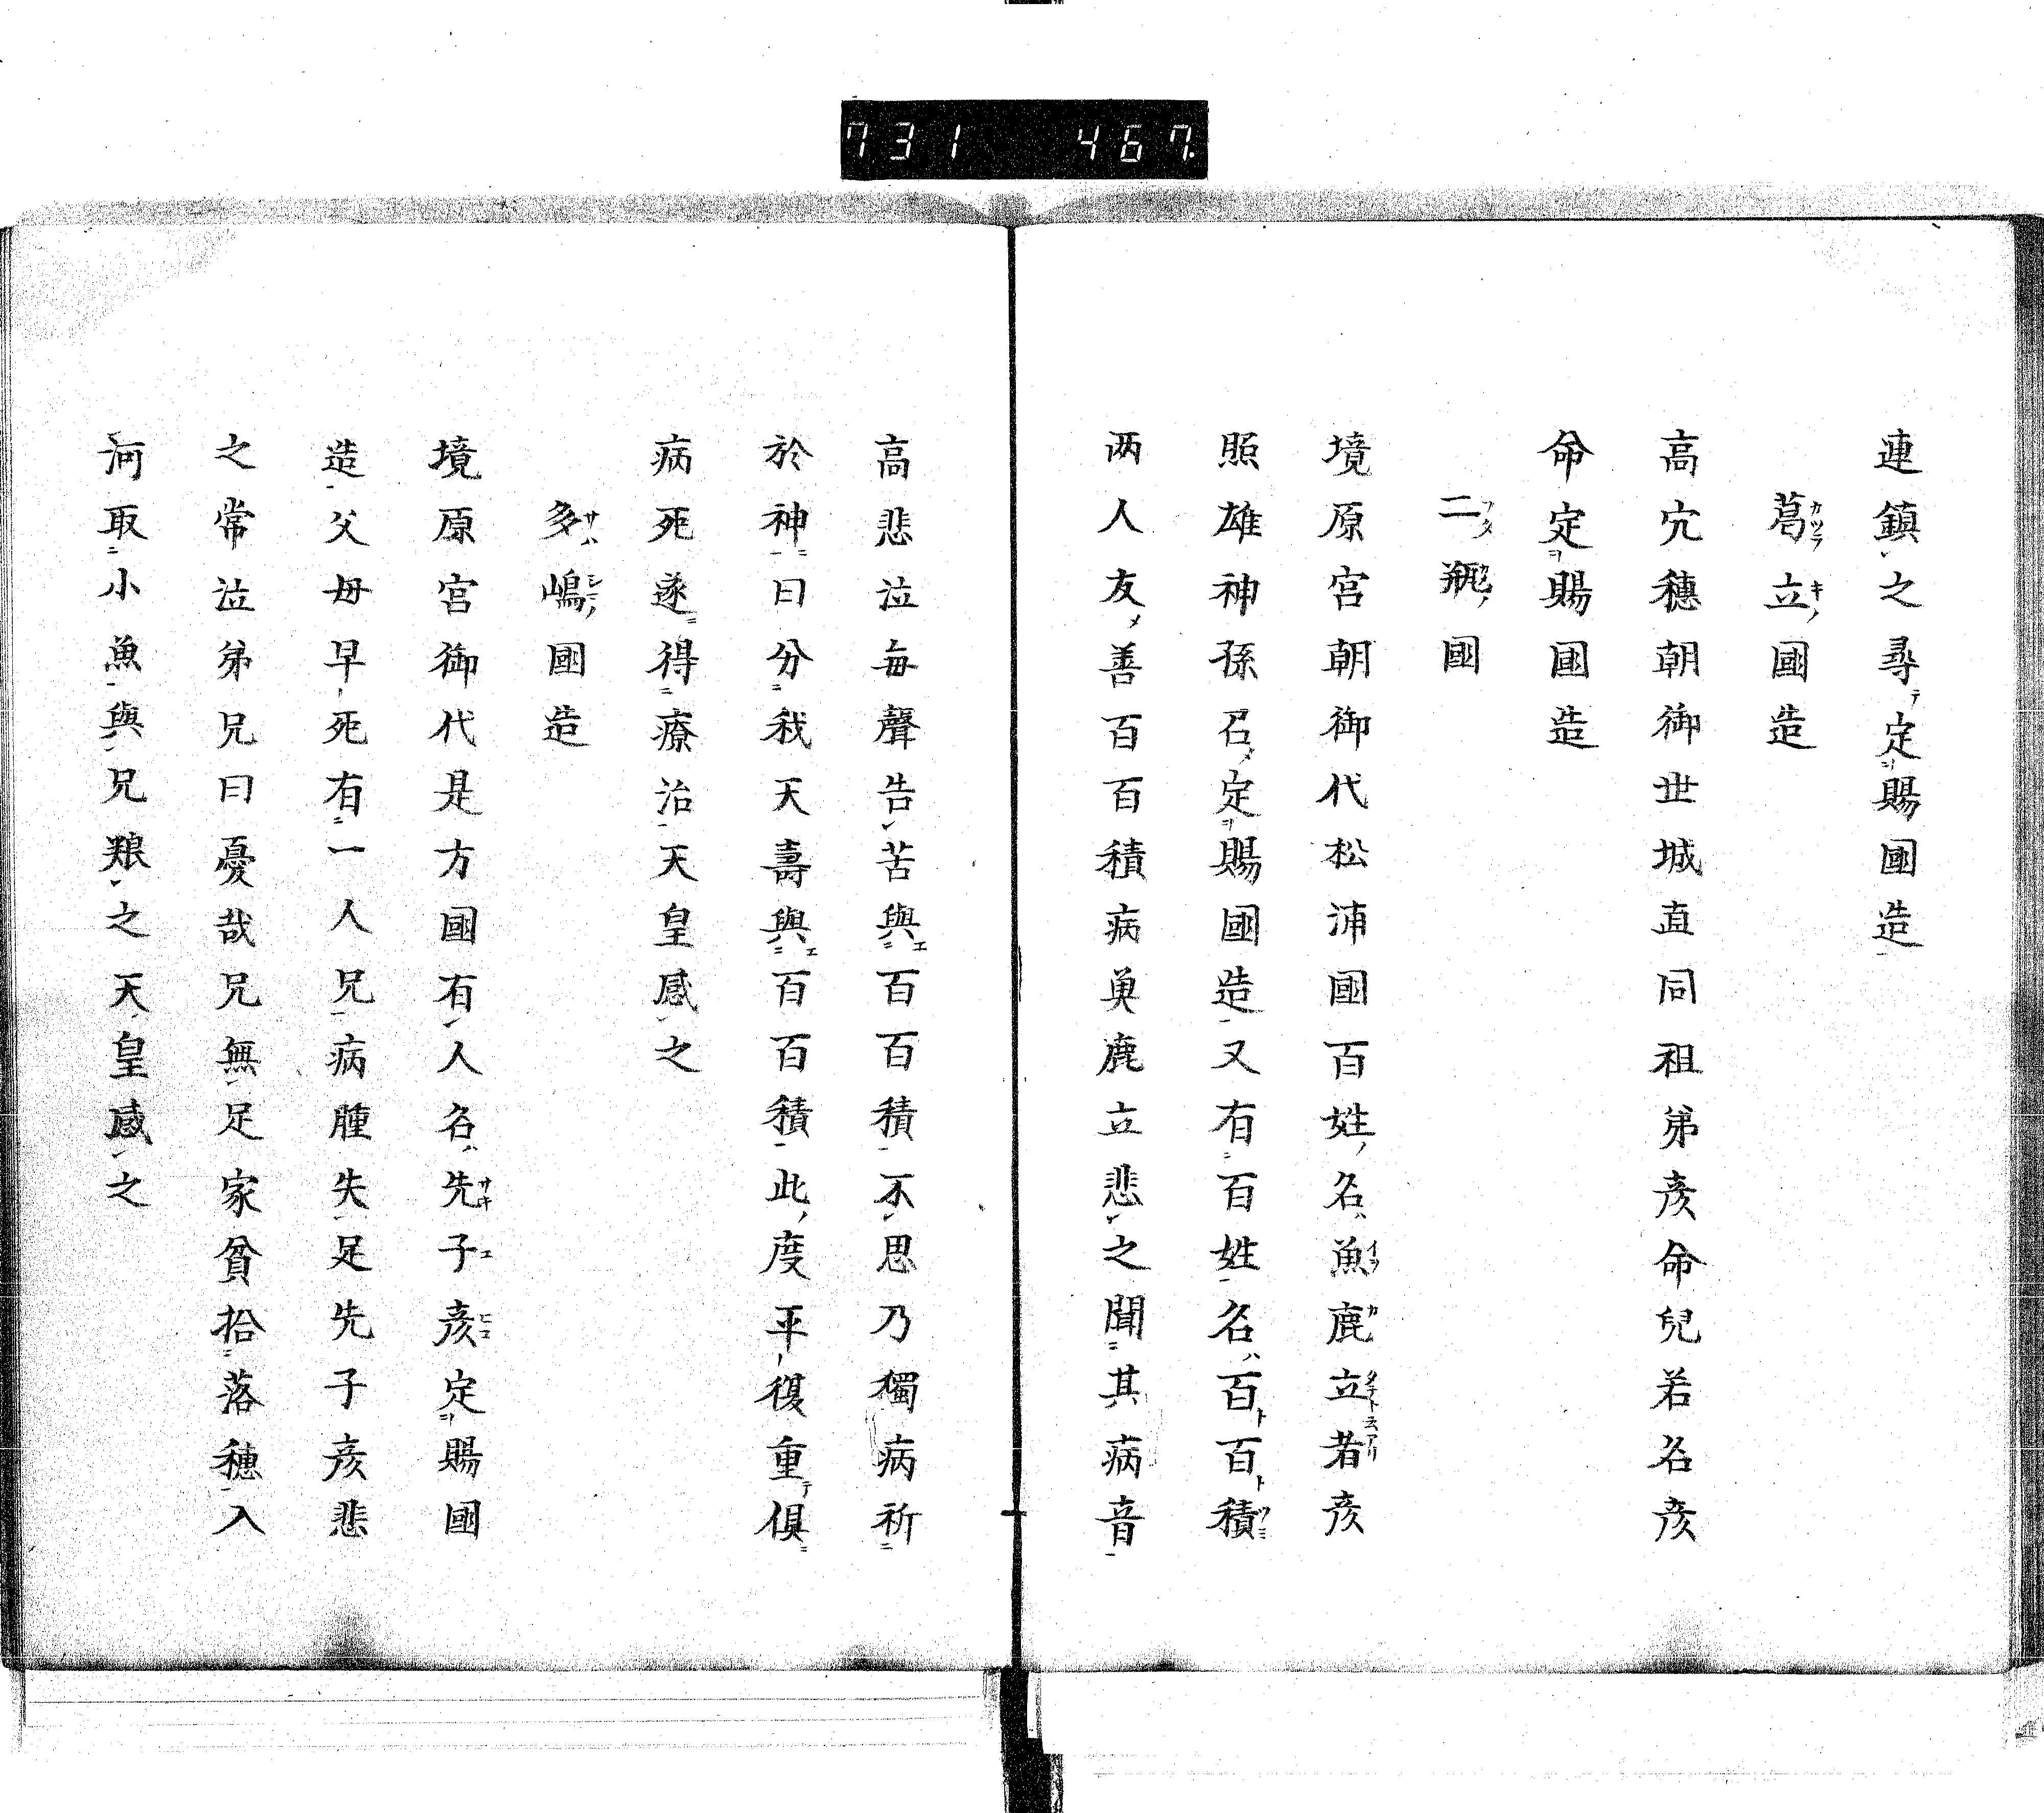 731 467.
連鎮之尋定賜國造
葛立國造
高宂穗朝御世城直同祖弟彦命兒若名彦
命定賜國造
二瓶國
境原宮朝御代松浦國百姓名魚鹿立者彦
照雄神孫召定賜國造又有百姓名百百積
两人友善百百積病臾鹿立悲之聞其病音
高悲泣毎聲告苦與百百積不思乃獨病祈
於神曰分我天壽與百百積此度平復重俱
病死遂得療治天皇感之
多嶋國造
境原宮御代是方國有人名先子彦定賜國
造父母早死有一人兄病腫失足先子彦悲
之常泣弟兄曰憂哉兄無足家貧拾落穗入
河取小魚與兄粮之天皇感之